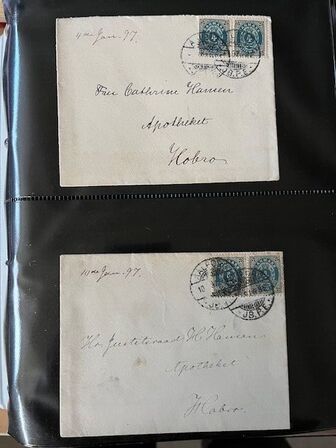 4de Jan. 97.
4
4
JB.P.E.
Frøe Cathrine Hansen
Apotheket
Hobro
10de Jan. 97.
JB.P.E.
Hr. Justitsraad H. Hansen
Apotheket
Hobro